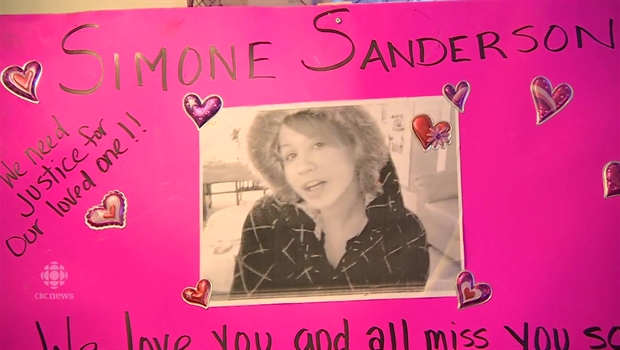 SIMONE SANDERSON
We need
Justice for
Our loved one!!
CBCNEWS
We love you and all miss you so